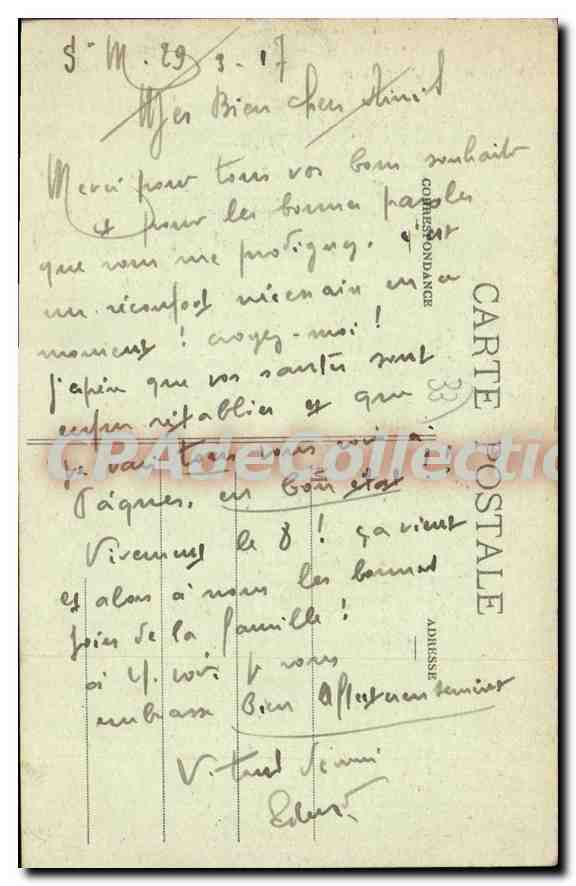 St M. 29 3-17
Mes Bien chers Amis
Merci pour tous vos bons souhaits
et pour les bonnes paroles
que vous me prodiguez. C'est
un réconfort nécessaire en ce
moment ! croyez-moi !
J'espère que vos santés sont
enfin rétablies et que
je vais tous vous voir à
Pâques, en bon état
Vivement le 8 ! ça vient
et alors à nous les bonnes
joies de la famille !
à vous
embrasse Bien Affectueusement
CORRESPONDANCE
CARTE POSTALE
ADRESSE
33
CPAdeCollection